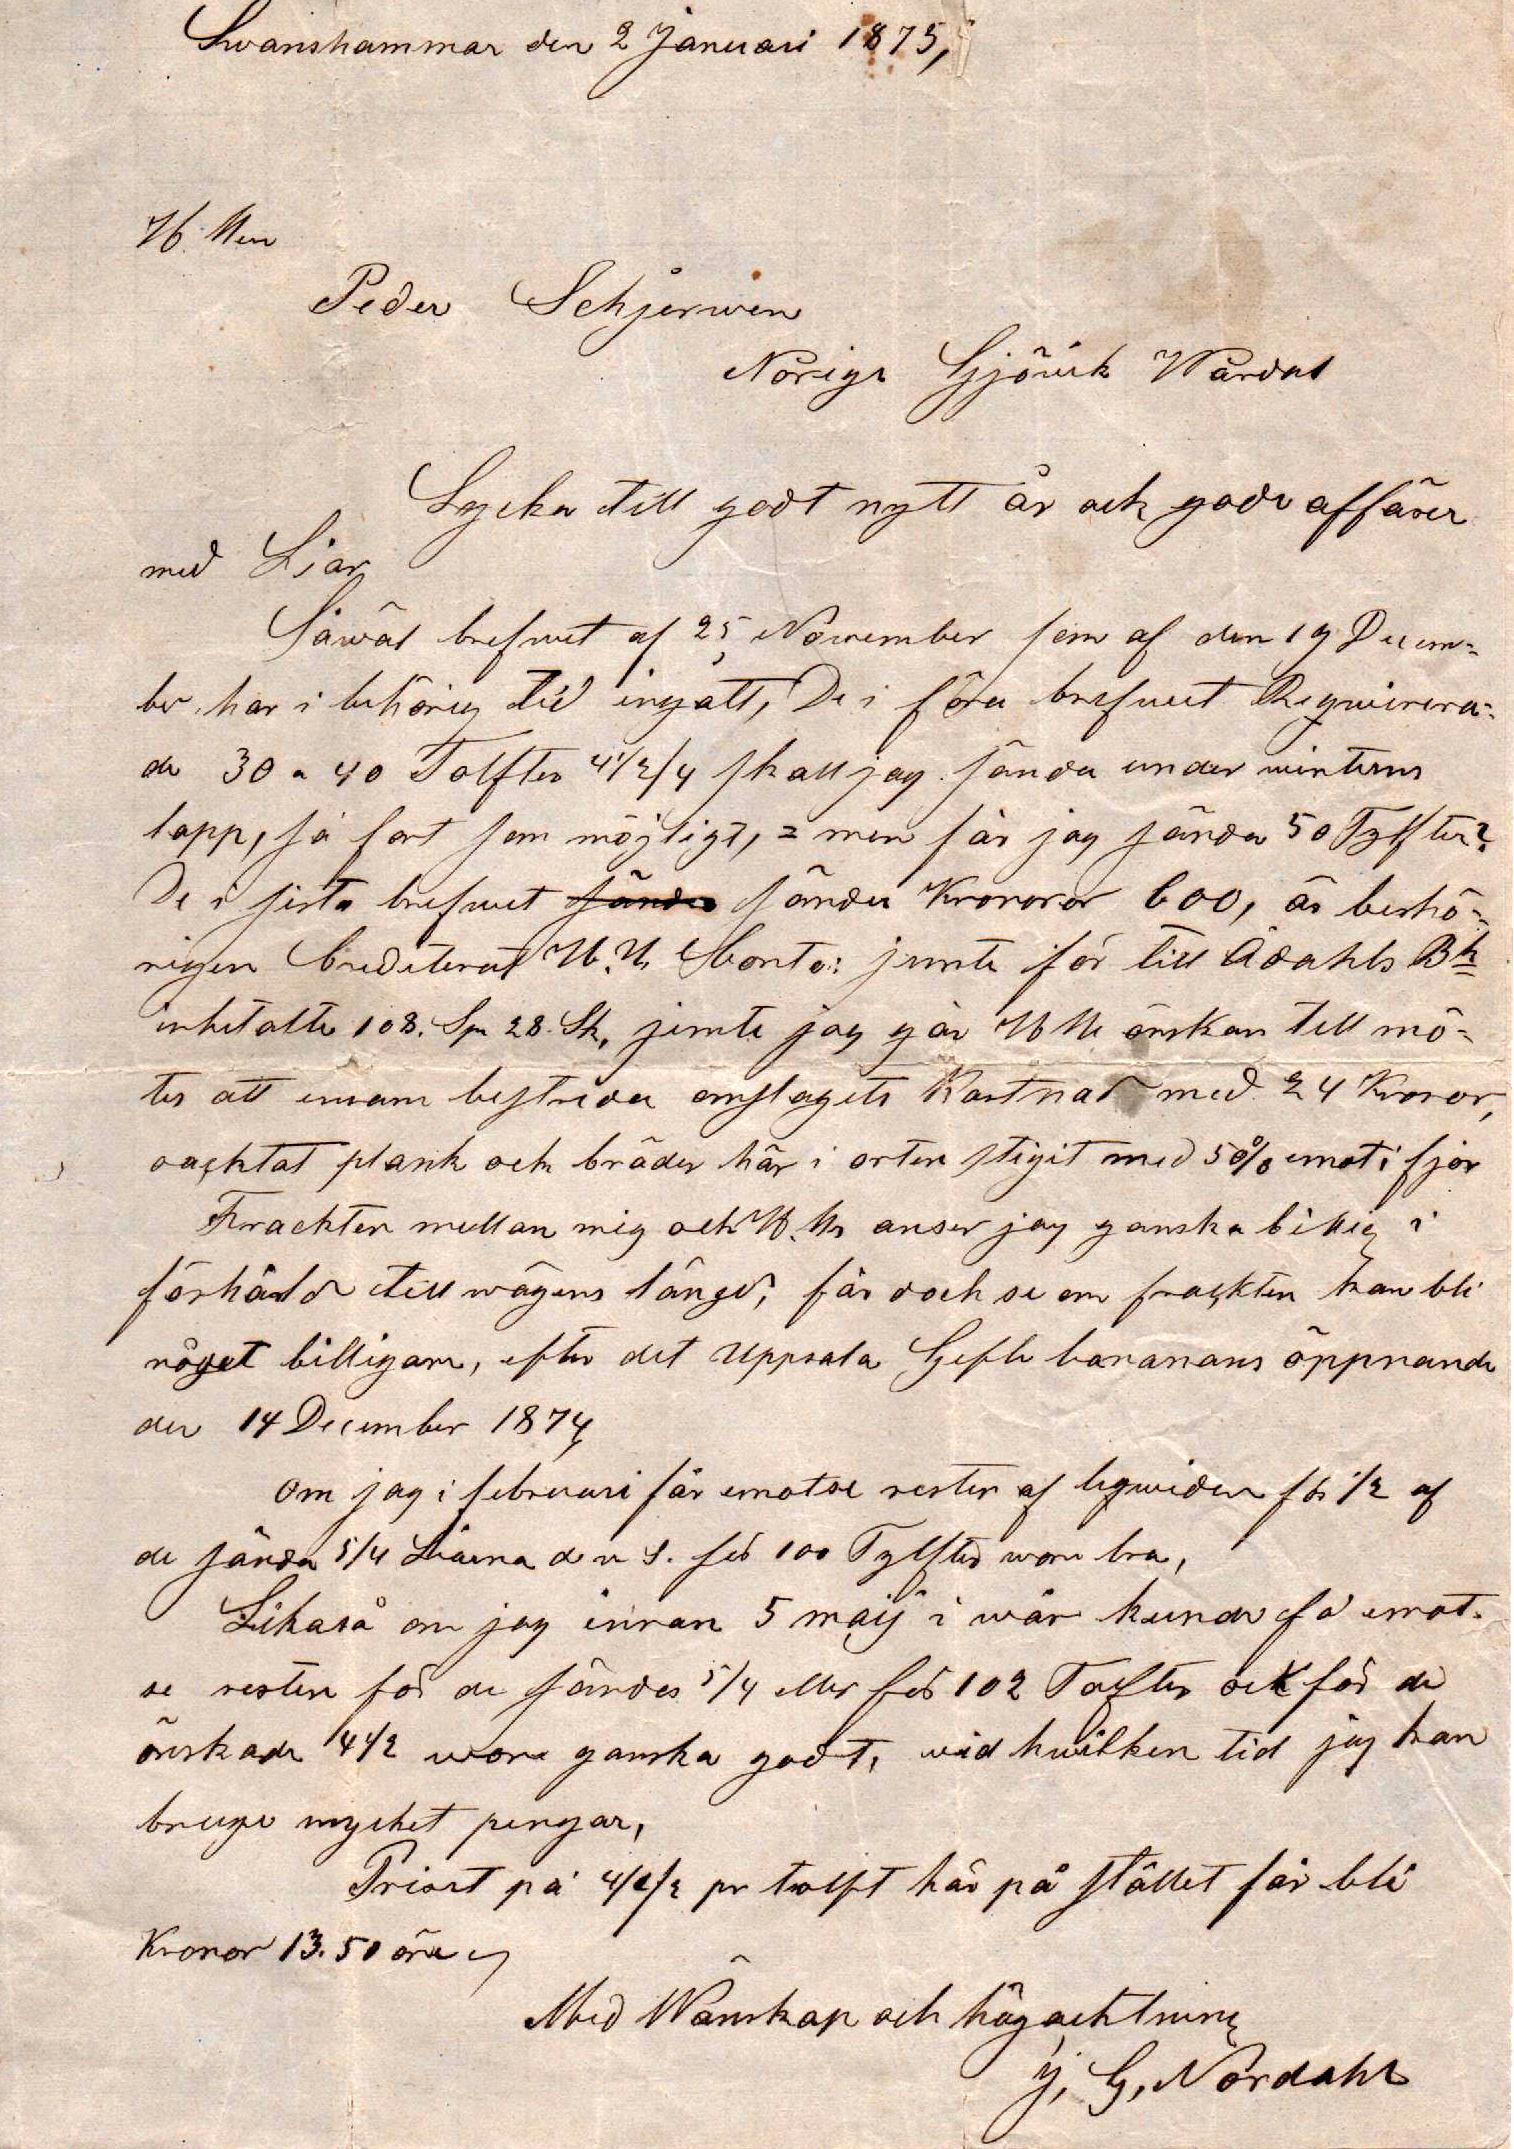 Swanshammar den 2 Januari 1875,
H. Herr
Peder Schjerwen
Norige Gjöwik Wardal
Lycka till godt nytt år och goda affärer
med Liar
Såwäl brefwet af 25 November som af den 19 Decem=
ber har i behörig tid ingått, De i förra brefwet Requirera=
de 30 a 40 Tolfter 4 1/2/4 skall jag sända under winterns
lopp, så fort som möjligt, = men får jag sända 50 Tylfter?
De i sista brefwet sände sända Kronoror 600, är behö=
rigen Crediterat H. H. Conto: jemte för till Ådahls Bk
inbetalte 108. Sp 28. Sk, jemte jag går H H önskan till mö=
tes att ensam bestrida omslagets Kostnad med 24 Kronor,
oacktat plank och bräder här i orten stigit med 50% emot i fjor
Frackten mellan mig och H. H. anser jag ganska billig i
förhåld till wägens längd, får doch se om frackten kan bli
något billigare, efter det Uppsala Gefle bananans öppnande
den 14 December 1874,
Om jag i februari får emotse resten af liqwiden för 1/2 af
de sända 5/4 Liarna d v s. för 100 Tylfter wore bra,
Likaså om jag innan 5 maij i wår kunde få emot=
se resten för de sändes 5/4 eller för 102 Tolfter och för de
önskade 4 1/2 wore ganska godt, wid hwilken tid jag kan
bruge mycket pengar,
Priset på 4/1/2 pr tolft här på stället får bli
Kronor 13.50 öre
Med Wänskap och högachtning
J, G, Nordahl